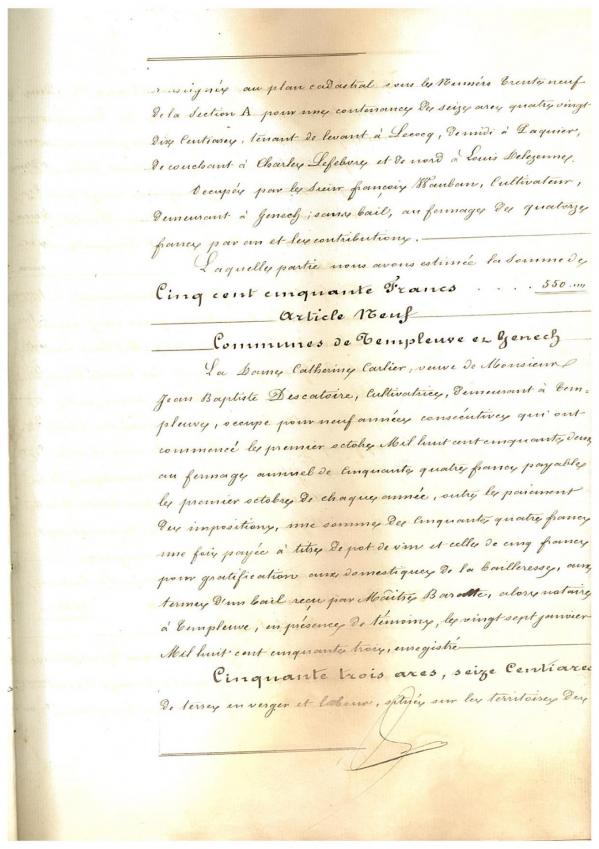 désignée au plan cadastral sous le Numéro trente neuf
de la Section A pour une contenance de seize ares quatre vingt
dix Centiares, tenant de levant à Lecocq, de midi à Paquier,
de couchant à Charles Lefebvre et de nord à Louis Delezenne.
Occupée par le Sieur françois Wauban, Cultivateur,
demeurant à Genech, sans bail, au fermage de quatorze
francs par an et les contributions.
Laquelle partie nous avons estimée la somme de
Cinq cent cinquante Francs . . . . 550 "
Article Neuf
Communes de Templeuve et Genech
La Dame Catherine Carlier, veuve de Monsieur
Jean Baptiste Descatoire, Cultivatrice, demeurant à Tem-
pleuve, occupe pour neuf années consécutives qui ont
commencé le premier octobre Mil huit cent cinquante deux
au fermage annuel de Cinquante quatre francs payable
le premier octobre de chaque année, outre le paiement
des impositions, une somme de cinquante quatre francs
une fois payée à titre de pot de vin et celle de cinq francs
pour gratification aux domestiques de la bailleresse, aux
termes d'un bail reçu par Maître Baratte, alors notaire
à Templeuve, en présence de témoins, le vingt sept janvier
Mil huit cent cinquante trois, enregistré
Cinquante trois ares, seize Centiares
de terre en verger et labour, située sur les territoires des